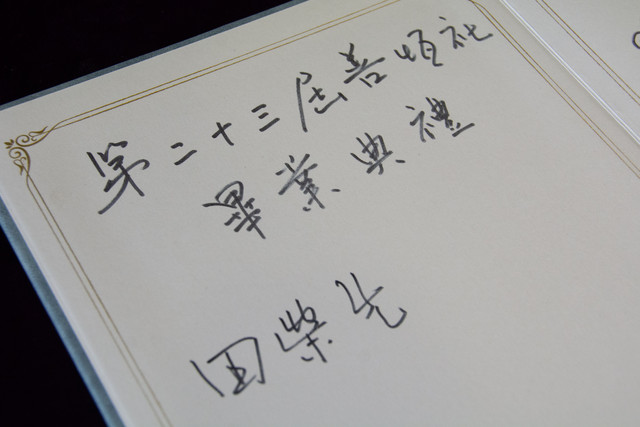 第二十三屆善頌社
畢業典禮
田榮先